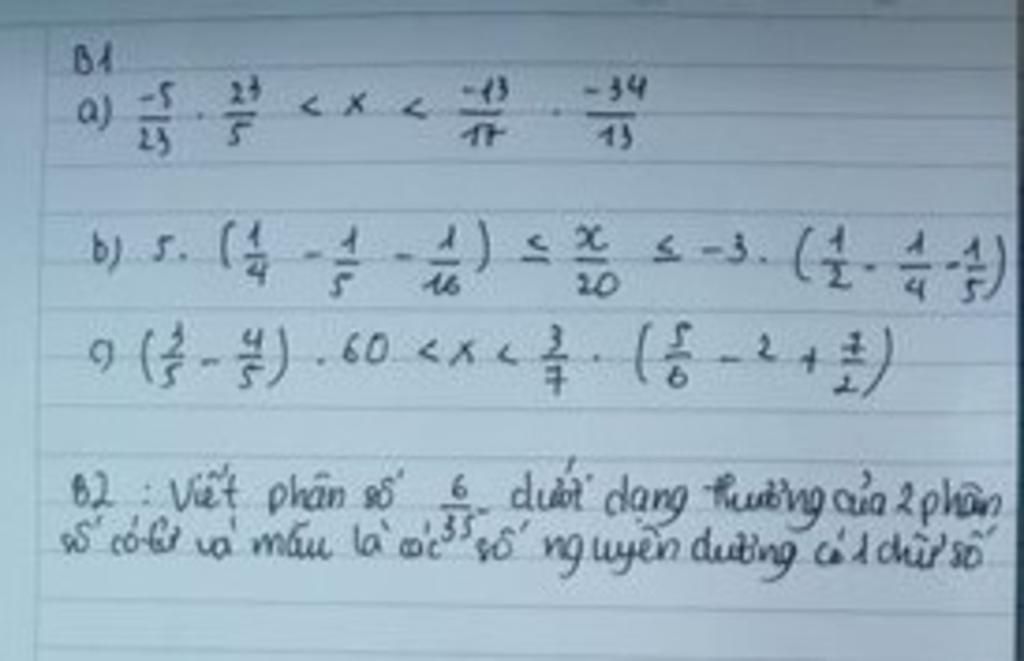 B1
a) -5/23 . 23/5 < x < -13/17 . -34/13
b) 5. (1/4 - 1/5 - 1/16) ≤ x/20 ≤ -3. (1/2 - 1/4 - 1/5)
c) (3/5 - 4/5) . 60 < x < 3/7 . (5/6 - 2 + 7/2)
B2 : Viết phân số 6/35 dưới dạng thương của 2 phân
số có tử và mẫu là các số nguyên dương có 1 chữ số